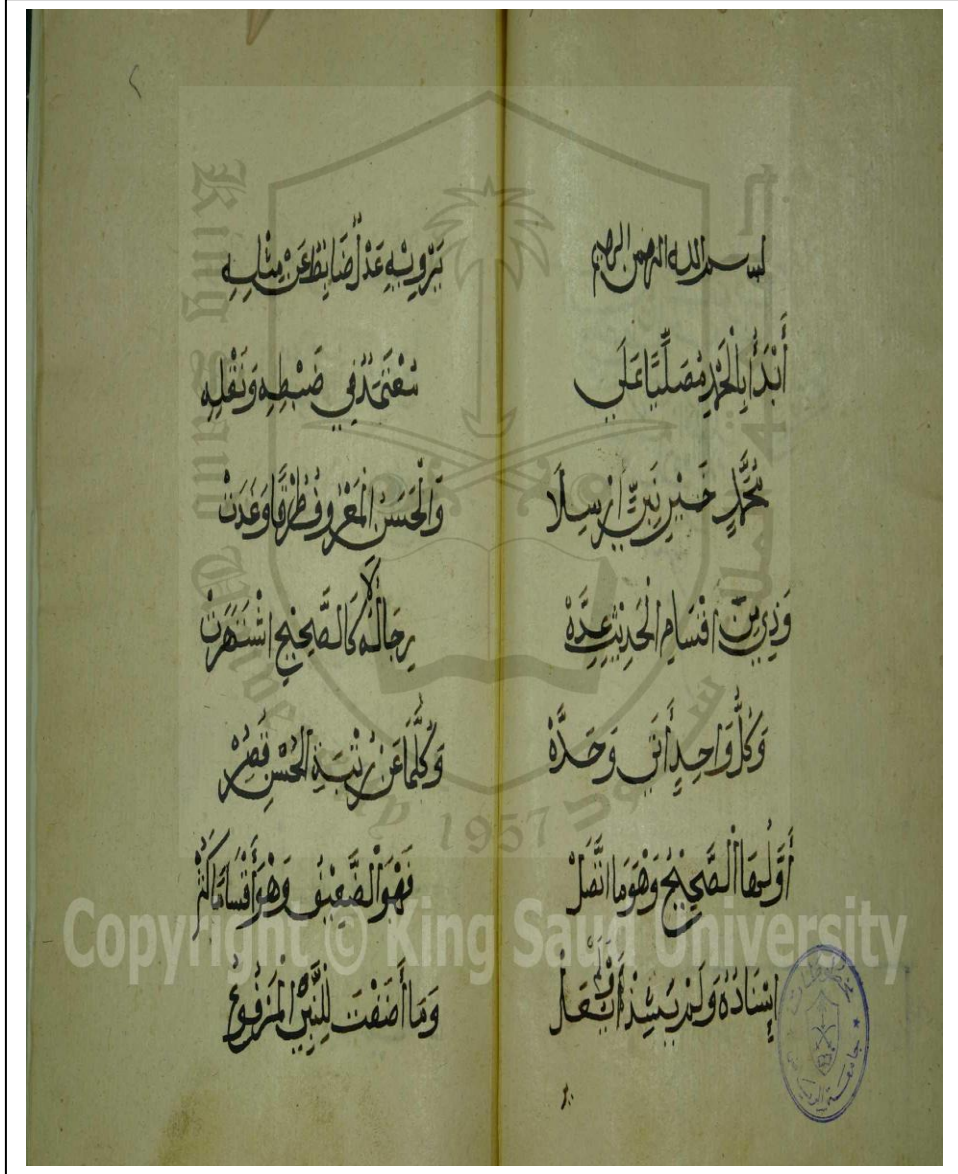 بسم الله الرحمن الرحيم
أَبْدَأُ بِالْحَمْدِ مُصَلِّيًا عَلَى
مُحَمَّدٍ خَيْرِ نَبِيٍّ أُرْسِلَا
وَذِي مِنْ أَقْسَامِ الْحَدِيثِ عِدَّهْ
وَكُلُّ وَاحِدٍ أَتَى وَحَدَّهْ
أَوَّلُهَا الصَّحِيحُ وَهْوَ مَا اتَّصَلْ
إِسْنَادُهُ وَلَمْ يَشُذَّ أَوْ يُعَلْ
يَرْوِيهِ عَدْلٌ ضَابِطٌ عَنْ مِثْلِهِ
مُعْتَمَدٌ فِي ضَبْطِهِ وَنَقْلِهِ
وَالْحَسَنُ الْمَعْرُوفُ طُرْقًا وَغَدَتْ
رِجَالُهُ لَا كَالصَّحِيحِ اشْتَهَرَتْ
وَكُلُّمَا عَنْ رُتْبَةِ الْحُسْنِ قَصُرْ
فَهْوَ الضَّعِيفُ وَهْوَ أَقْسَامًا كَثُرْ
وَمَا أُضِفْتَ لِلنَّبِيِّ الْمَرْفُوعُ
King Saud University
1957
Copyright © King Saud University